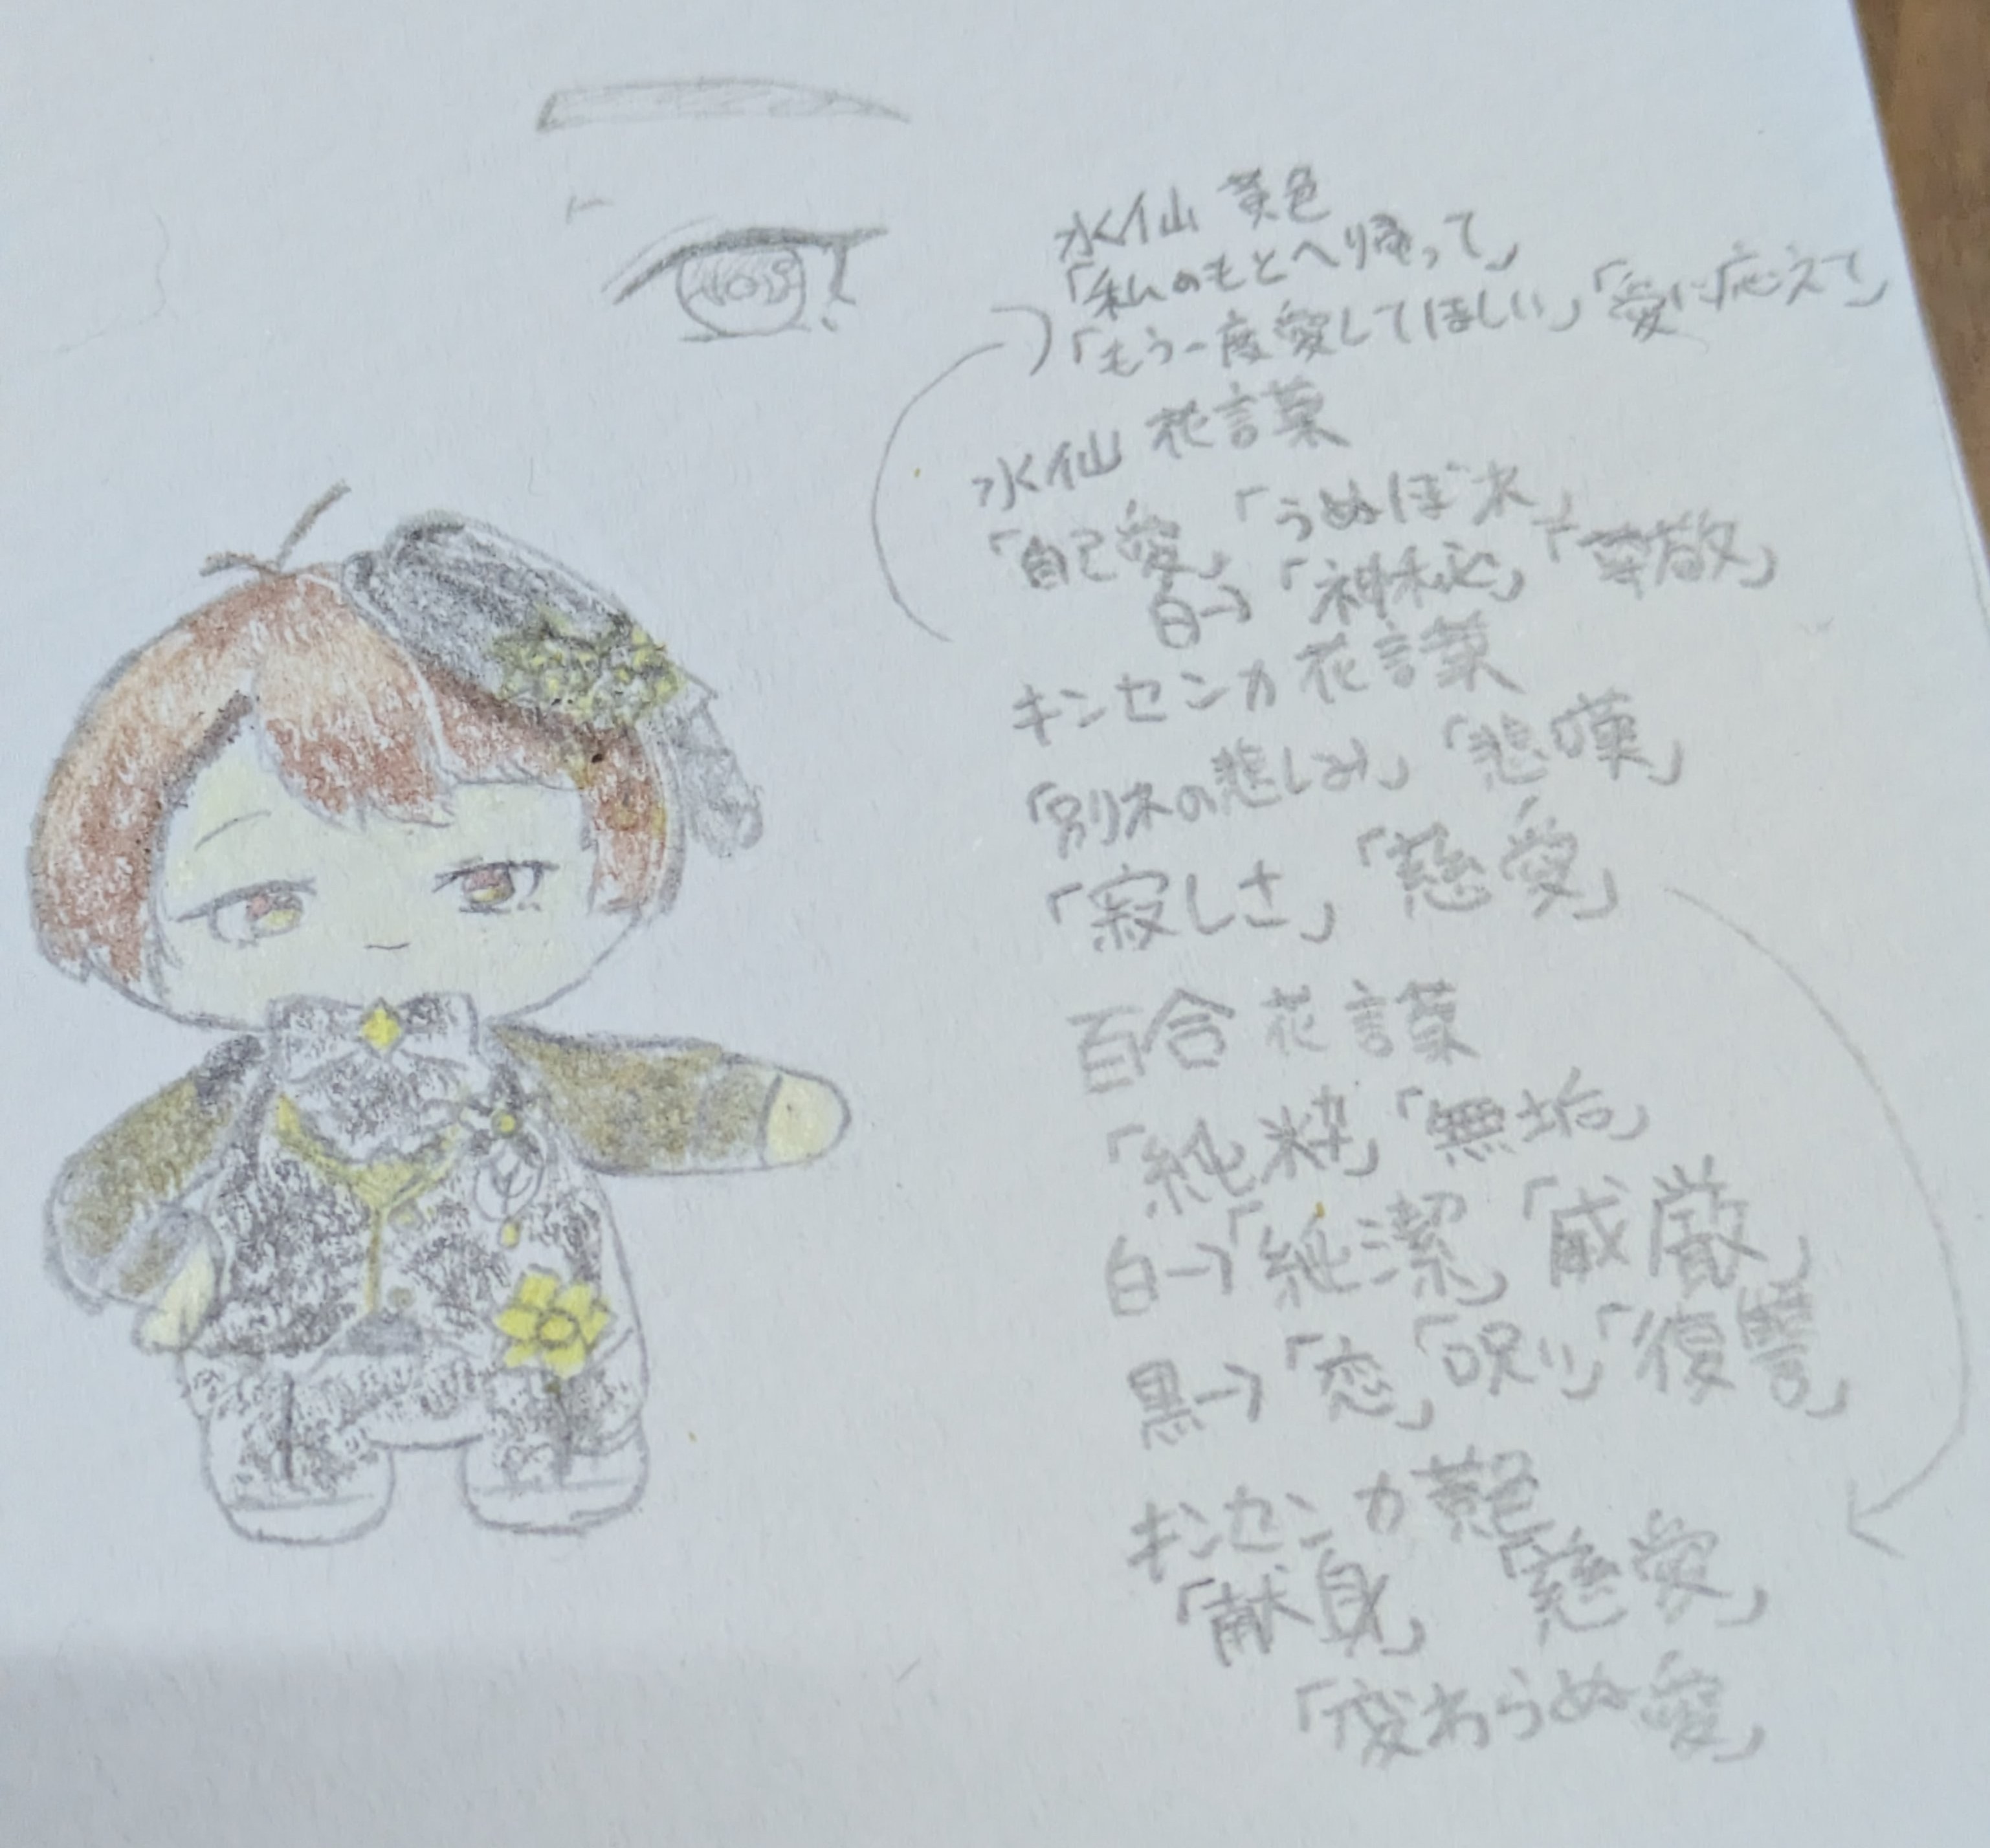 水仙 黄色
「私のもとへり帰って」
「もう一度愛してほしい」「愛に応えて」
水仙 花言葉
「自己愛」「うぬぼれ」
白→「神秘」「尊敬」
キンセンカ 花言葉
「別れの悲しみ」「悲嘆」
「寂しさ」「慈愛」
百合 花言葉
「純粋」「無垢」
白→「純潔」「威厳」
黒→「恋」「呪い」「復讐」
キンセンカ 黄色
「献身」「慈愛」
「変わらぬ愛」